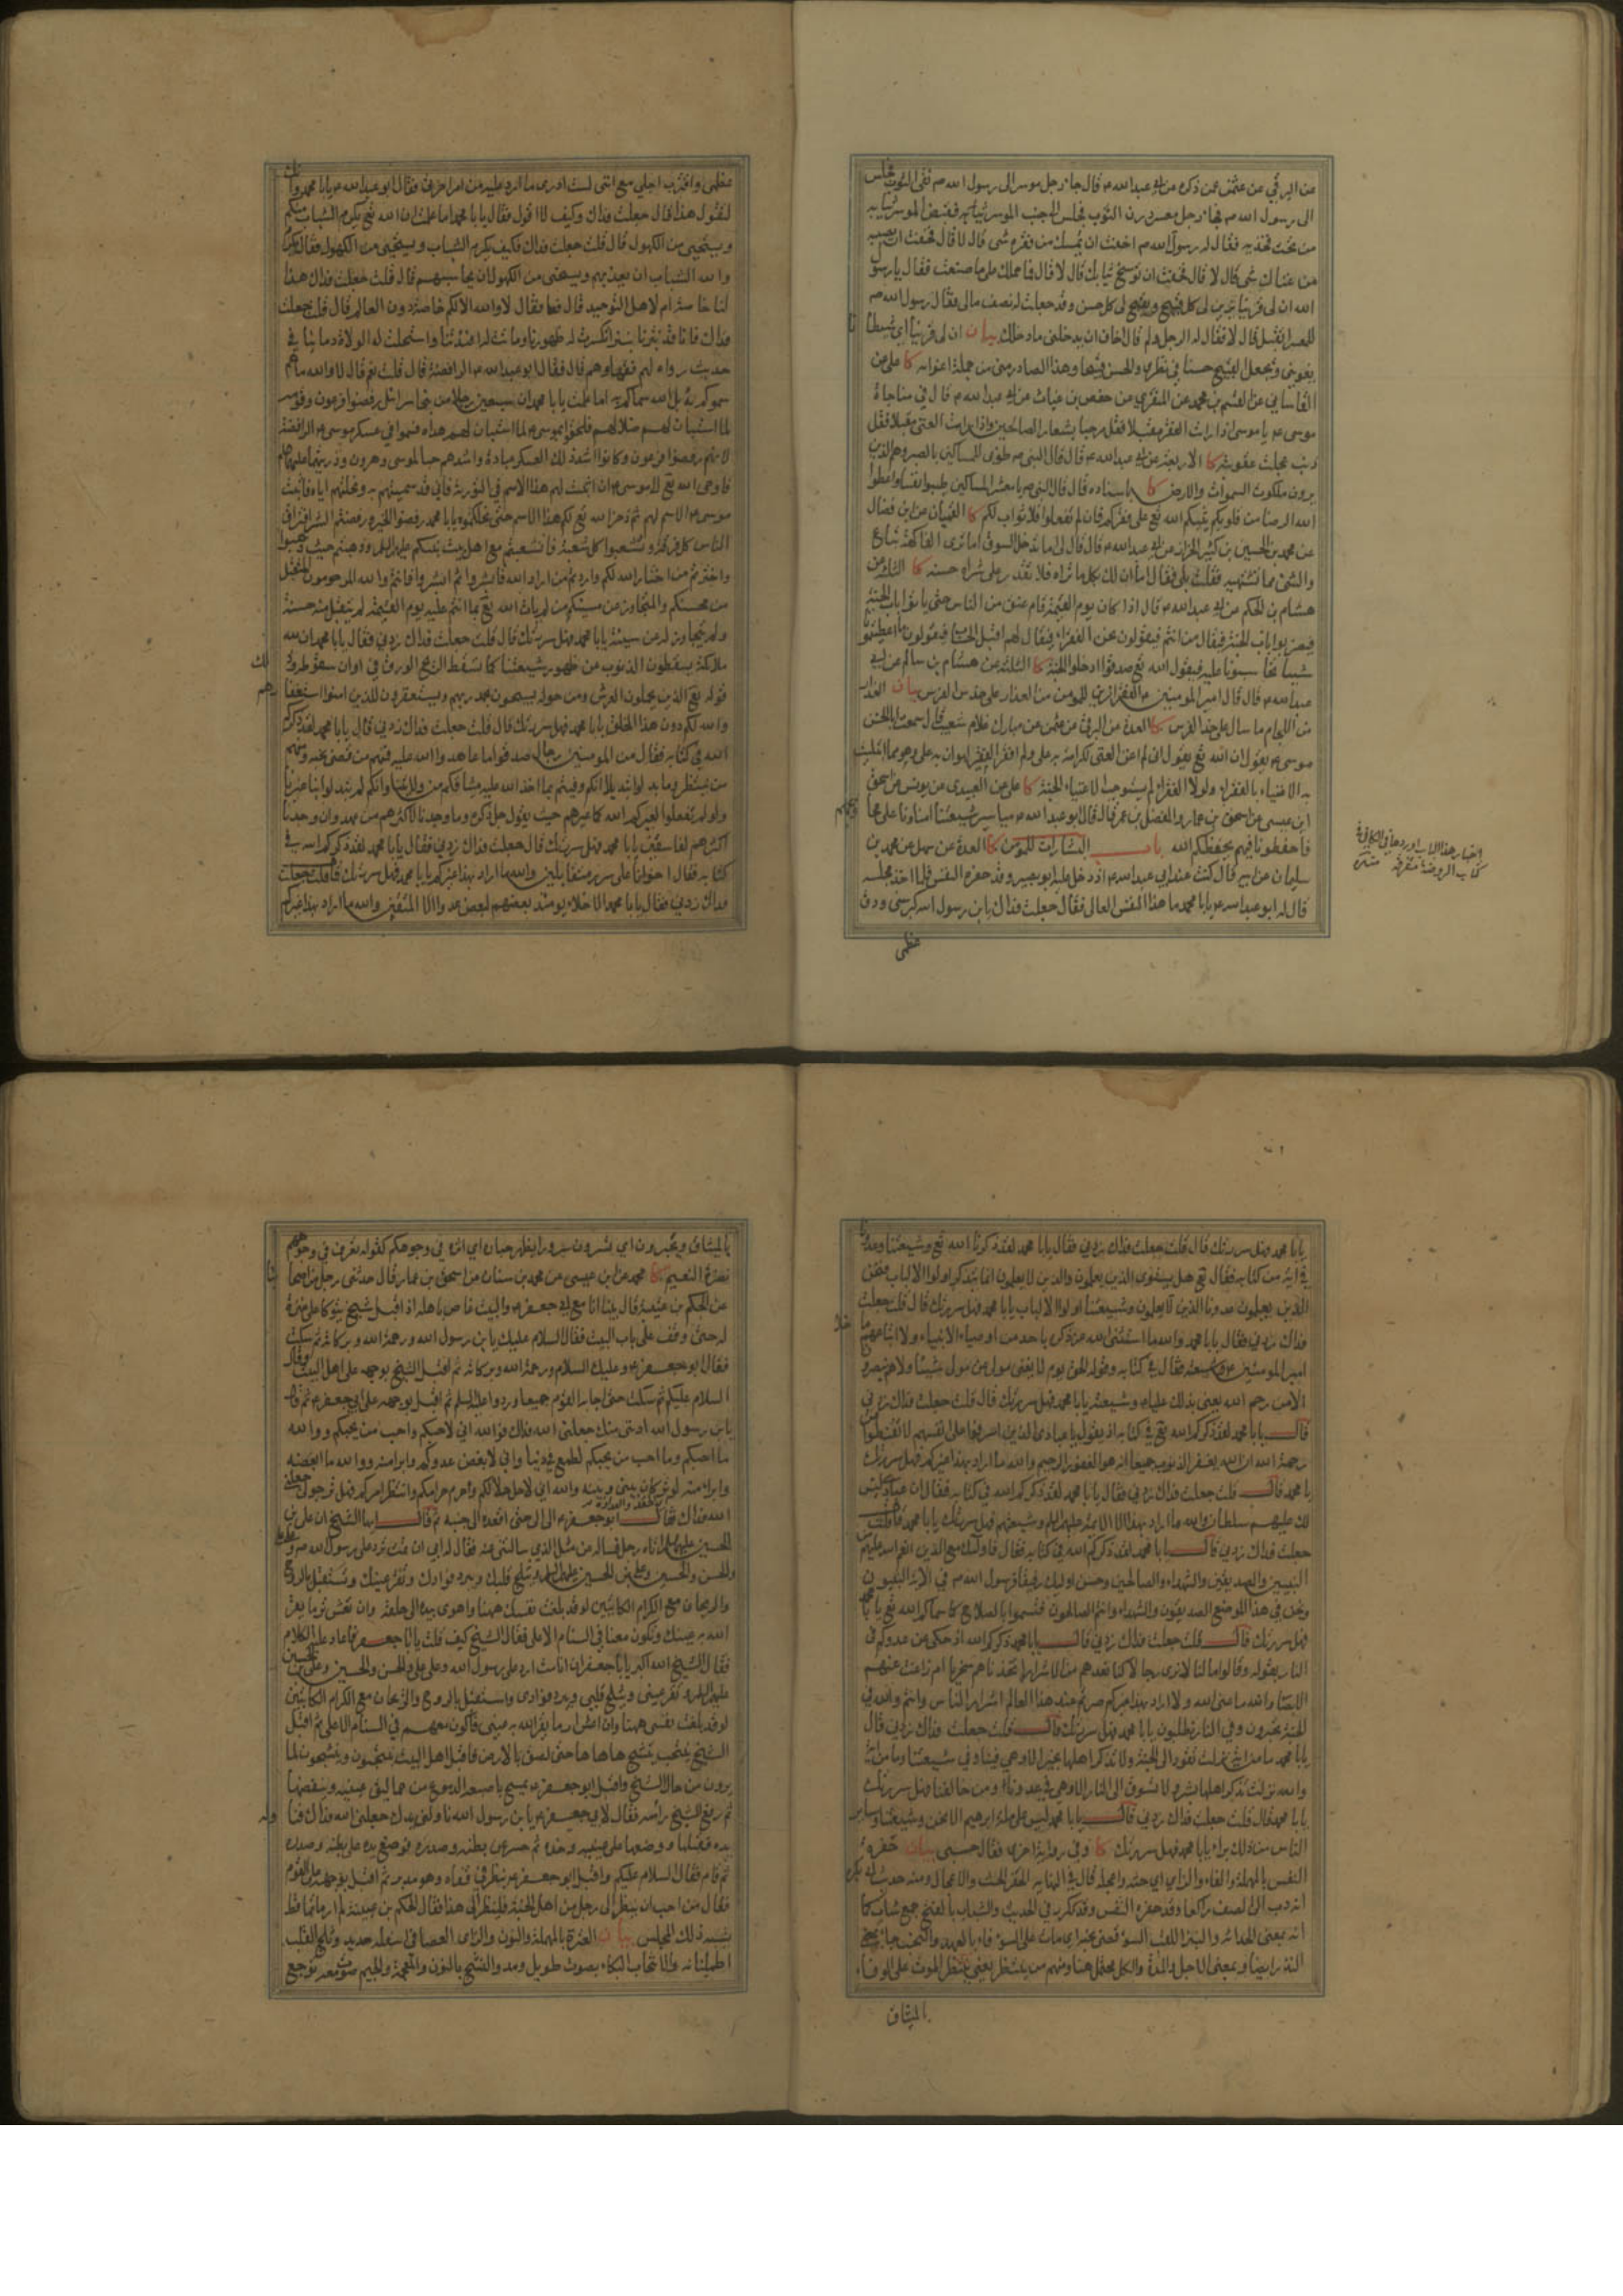 عن البرقي عن عثمن عمن ذكره عن ابي عبد الله ع قال جاء رجل موسر الى رسول الله ص نقي الثوب فجلس
الى رسول الله ص فجاء رجل معسر درن الثوب فجلس الى جنب الموسر فقبض الموسر ثيابه
من تحت فخذيه فقال له رسول الله ص اخفت ان يمسك من فقره شي قال لا قال فخفت ان يصيبه
من غناك شي قال لا قال فخفت ان يوسخ ثيابك قال لا قال فما حملك على ما صنعت فقال يا رسول
الله ان لي قرينا يزين لي كل قبيح ويقبح لي كل حسن وقد جعلت له نصف مالي فقال رسول الله ص
للمعسر اتقبل قال لا فقال له الرجل ولم قال اخاف ان يدخلني ما دخلك بيان ان لي قرينا اي شيطانا
يغويني ويجعل القبيح حسنا في نظري والحسن قبيحا وهذا الصادر مني من جملة اغوائه كا علي عن
القاساني عن القسم بن محمد عن المنقري عن حفص بن غياث عن ابي عبد الله ع قال في مناجاة
موسى ع يا موسى اذا رايت الفقر مقبلا فقل مرحبا بشعار الصالحين واذا رايت الغنى مقبلا فقل
ذنب عجلت عقوبته كا الاربعة عن ابي عبد الله ع قال قال النبي ص طوبى للمساكين بالصبر وهم الذين
يرون ملكوت السموات والارض كا باسناده قال قال النبي ص يا معشر المساكين طيبوا نفسا واعطوا
الله الرضا من قلوبكم يثبكم الله تع على فقركم فان لم تفعلوا فلا ثواب لكم كا العميان عن ابن فضال
عن محمد بن الحسين بن كثير الخزاز عن ابي عبد الله ع قال قال لي اما تدخل السوق اما ترى الفاكهة تباع
والشي مما تشتهيه فقلت بلى فقال اما ان لك بكل ما تراه فلا تقدر على شراه حسنة كا الثلثة عن
هشام بن الحكم عن ابي عبد الله ع قال اذا كان يوم القيمة قام عنق من الناس حتى ياتوا باب الجنة
فيضربوا باب الجنة فيقال من انتم فيقولون نحن الفقراء فيقال لهم اقبل الحساب فيقولون ما اعطيتمونا
شيئا تحاسبونا عليه فيقول الله تع صدقوا ادخلوا الجنة كا الثلثة عن هشام بن سالم عن ابي
عبد الله ع قال قال امير المومنين ع الفقر ازين للمومن من العذار على خد الفرس بيان العذار
من اللجام ما سال على خد الفرس كا العدة عن البرقي عن عثمن عن مبارك غلام شعيب قال سمعت ابا الحسن
موسى ع يقول ان الله تع يقول اني لم اغن الغني لكرامة به علي ولم افقر الفقير لهوان به علي وهو مما ابتليت
به الاغنياء بالفقراء ولولا الفقراء لم يستوجب الاغنياء الجنة كا علي عن العبيدي عن يونس عن اسحق
ابن عيسى عن اسحق بن عمار والمفضل بن عمر قال قال ابو عبد الله ع مياسير شيعتنا امناونا على محاويجهم
فاحفظونا فيهم يحفظكم الله باب البشارات للمومن كا العدة عن سهل عن محمد بن
سليمان عن ابيه قال كنت عند ابي عبد الله ع اذ دخل عليه ابو بصير وقد حفزه النفس فلما اخذ مجلسه
قال له ابو عبد الله ع يا با محمد ما هذا النفس العالي فقال جعلت فداك يا بن رسول الله كبر سني ودق
عظمي
اخبار هذا الباب اوردها في الكافي في
كتاب الروضة متفرقة منه
عظمي واقترب اجلي مع انني لست ادري ما ارد عليه من امر اخرتي فقال ابو عبد الله ع يا با محمد وانك
لتقول هذا قال جعلت فداك وكيف لا اقول فقال يا با محمد اما علمت ان الله تع يكرم الشباب منكم
ويستحيي من الكهول قال قلت جعلت فداك فكيف يكرم الشباب ويستحيي من الكهول فقال يكرم
والله الشباب ان يعذبهم ويستحيي من الكهول ان يحاسبهم قال قلت جعلت فداك هذا
لنا خاصة ام لاهل التوحيد قال فقال لا والله الا لكم خاصة دون العالم قال قلت جعلت
فداك فانا قد نبزنا نبزا انكسرت له ظهورنا وماتت له افئدتنا واستحلت له الولاة دماءنا في
حديث رواه لهم فقهاوهم قال فقال ابو عبد الله ع الرافضة قال قلت نعم قال لا والله ما هم
سموكم به بل الله سماكم به اما علمت يا با محمد ان سبعين رجلا من بني اسرائيل رفضوا فرعون وقومه
لما استبان لهم ضلالهم فلحقوا بموسى ع لما استبان لهم هداه فسموا في عسكر موسى ع الرافضة
لانهم رفضوا فرعون وكانوا اشد ذلك العسكر عبادة واشدهم حبا لموسى وهرون وذريتهما عليهما السلام
فاوحى الله تع الى موسى ع ان اثبت لهم هذا الاسم في التورية فاني قد سميتهم به ونحلتهم اياه فاثبت
موسى ع الاسم لهم ثم ذخر الله تع لكم هذا الاسم حتى نحلكموه يا با محمد رفضوا الخير ورفضتم الشر افترق
الناس كل فرقة وتشعبوا كل شعبة فانشعبتم مع اهل بيت نبيكم عليهم السلم وذهبتم حيث ذهبوا
واخترتم من اختار الله لكم واردتم من اراد الله فابشروا ثم ابشروا فانتم والله المرحومون المتقبل
من محسنكم والمتجاوز عن مسيئكم من لم يات الله تع بما انتم عليه يوم القيمة لم يتقبل منه حسنة
ولم يتجاوز له عن سيئة يا با محمد فهل سررتك قال قلت جعلت فداك زدني فقال يا با محمد ان لله
ملائكة يسقطون الذنوب عن ظهور شيعتنا كما تسقط الريح الورق في اوان سقوطه وذلك
قوله تع الذين يحملون العرش ومن حوله يسبحون بحمد ربهم ويستغفرون للذين امنوا استغفارهم
والله لكم دون هذا الخلق يا با محمد فهل سررتك قال قلت جعلت فداك زدني قال يا با محمد لقد ذكركم
الله في كتابه فقال من المومنين رجال صدقوا ما عاهدوا الله عليه فمنهم من قضى نحبه ومنهم
من ينتظر وما بدلوا تبديلا انكم وفيتم بما اخذ الله عليه ميثاقكم من ولايتنا وانكم لم تبدلوا بنا غيرنا
ولو لم تفعلوا لعيركم الله كما عيرهم حيث يقول جل ذكره وما وجدنا لاكثرهم من عهد وان وجدنا
اكثرهم لفاسقين يا با محمد فهل سررتك قال قلت جعلت فداك زدني فقال يا با محمد لقد ذكركم الله في
كتابه فقال اخوانا على سرر متقابلين والله ما اراد بهذا غيركم يا با محمد فهل سررتك قال قلت جعلت
فداك زدني فقال يا با محمد الاخلاء يومئذ بعضهم لبعض عدو الا المتقين والله ما اراد بهذا غيركم
يا با محمد فهل سررتك قال قلت جعلت فداك زدني فقال يا با محمد لقد ذكرنا الله تع وشيعتنا وعدونا
في اية من كتابه فقال تع هل يستوي الذين يعلمون والذين لا يعلمون انما يتذكر اولوا الالباب فنحن
الذين يعلمون عدونا الذين لا يعلمون وشيعتنا اولوا الالباب يا با محمد فهل سررتك قال قلت جعلت
فداك زدني فقال يا با محمد والله ما استثنى الله عز ذكره باحد من اوصياء الانبياء ولا اتباعهم ما خلا
امير المومنين ع وشيعته فقال في كتابه وقوله الحق يوم لا يغني مولى عن مولى شيئا ولا هم ينصرون
الا من رحم الله يعني بذلك عليا ع وشيعته يا با محمد فهل سررتك قال قلت جعلت فداك زدني
قال يا با محمد لقد ذكركم الله تع في كتابه اذ يقول يا عبادي الذين اسرفوا على انفسهم لا تقنطوا من
رحمة الله ان الله يغفر الذنوب جميعا انه هو الغفور الرحيم والله ما اراد بهذا غيركم فهل سررتك
يا با محمد قال قلت جعلت فداك زدني فقال يا با محمد لقد ذكركم الله في كتابه فقال ان عبادي ليس
لك عليهم سلطان والله ما اراد بهذا الا الائمة عليهم السلم وشيعتهم فهل سررتك يا با محمد قال قلت
جعلت فداك زدني قال يا با محمد لقد ذكركم الله في كتابه فقال فاولئك مع الذين انعم الله عليهم من
النبيين والصديقين والشهداء والصالحين وحسن اولئك رفيقا فرسول الله ص في الاية النبيون
ونحن في هذا الموضع الصديقون والشهداء وانتم الصالحون فتسموا بالصلاح كما سماكم الله تع يا با محمد
فهل سررتك قال قلت جعلت فداك زدني قال يا با محمد لقد ذكركم الله اذ حكى عن عدوكم في
النار بقوله وقالوا ما لنا لا نرى رجالا كنا نعدهم من الاشرار اتخذناهم سخريا ام زاغت عنهم
الابصار والله ما عنى الله ولا اراد بهذا غيركم صرتم عند هذا العالم اشرار الناس وانتم والله في
الجنة تحبرون وفي النار تطلبون يا با محمد فهل سررتك قال قلت جعلت فداك زدني قال
يا با محمد ما من اية نزلت تقود الى الجنة ولا تذكر اهلها بخير الا وهي فينا وفي شيعتنا وما من اية
والله نزلت تذكر اهلها بشر ولا تسوق الى النار الا وهي في عدونا ومن خالفنا فهل سررتك
يا با محمد قال قلت جعلت فداك زدني قال يا با محمد ليس على ملة ابرهيم الا نحن وشيعتنا وساير
الناس من ذلك براء يا با محمد فهل سررتك كا وفي رواية اخرى فقال حسبي بيان حفزه
النفس بالمهملة والفاء والزاي اي حثه واعجله قال في النهاية الحفز الحث والاعجال ومنه حديث ابي بكرة
انه دب الى الصف راكعا وقد حفزه النفس وقد تكرر في الحديث والشباب بالفتح جمع شاب كما
انه بمعنى الحداثة والنبز اللقب السوء قضى نحبه اي مات على السوء فاء بالعهد والنحب جاء بمعنى
النذر ايضا وبمعنى الاجل والمدة والكل يحتمل هنا ومنهم من ينتظر يعني ينتظر الموت على الوفاء
بالميثاق
بالميثاق وتحبرون اي تسرون سرورا يظهر حباره اي اثره في وجوهكم كقوله تعرف في وجوههم
نضرة النعيم كا محمد عن ابن عيسى عن محمد بن سنان عن اسحق بن عمار قال حدثني رجل من اصحابنا
عن الحكم بن عتيبة قال بينا انا مع ابي جعفر ع والبيت غاص باهله اذ اقبل شيخ يتوكا على عنزة
له حتى وقف على باب البيت فقال السلام عليك يا بن رسول الله ورحمة الله وبركاته ثم سكت
فقال ابو جعفر ع وعليك السلام ورحمة الله وبركاته ثم اقبل الشيخ بوجهه على اهل البيت وقال
السلام عليكم ثم سكت حتى اجابه القوم جميعا وردوا عليه السلم ثم اقبل بوجهه على ابي جعفر ع ثم قال
يا بن رسول الله ادنني منك جعلني الله فداك فوالله اني لاحبكم واحب من يحبكم ووالله
ما احبكم وما احب من يحبكم لطمع في دنيا واني لابغض عدوكم وابرا منه ووالله ما ابغضه
وابرا منه لوتر كان بيني وبينه والله اني لاحل حلالكم واحرم حرامكم وانتظر امركم فهل ترجو لي جعلني
الله فداك فقال ابو جعفر ع الي الي حتى اقعده الى جنبه ثم قال ايها الشيخ ان علي بن
الحسين عليهما السلم اتاه رجل فساله عن مثل الذي سالتني عنه فقال له ابي ان مت ترد على رسول الله ص وعلى علي
والحسن والحسين وعلي بن الحسين عليهم السلم ويثلج قلبك ويبرد فوادك وتقر عينك وتستقبل بالروح
والريحان مع الكرام الكاتبين لو قد بلغت نفسك ههنا واهوى بيده الى حلقه وان تعش ترى ما يقر
الله به عينك وتكون معنا في السنام الاعلى فقال الشيخ كيف قلت يا با جعفر فاعاد عليه الكلام
فقال الشيخ الله اكبر يا با جعفر ان انا مت ارد على رسول الله وعلى علي والحسن والحسين وعلي بن الحسين
عليهم السلم وتقر عيني ويثلج قلبي ويبرد فوادي واستقبل بالروح والريحان مع الكرام الكاتبين
لو قد بلغت نفسي ههنا وان اعش ار ما يقر الله به عيني فاكون معهم في السنام الاعلى ثم اقبل
الشيخ ينتحب ينشج ها ها ها حتى لصق بالارض فاقبل اهل البيت ينتحبون وينشجون لما
يرون من حال الشيخ واقبل ابو جعفر ع يمسح باصبعه الدموع من حماليق عينيه وينفضها
ثم رفع الشيخ راسه فقال لابي جعفر ع يا بن رسول الله ناولني يدك جعلني الله فداك فناوله
يده فقبلها ووضعها على عينيه وخده ثم حسر عن بطنه وصدره فوضع يده على بطنه وصدره
ثم قام فقال السلام عليكم واقبل ابو جعفر ع ينظر في قفاه وهو مدبر ثم اقبل بوجهه على القوم
فقال من احب ان ينظر الى رجل من اهل الجنة فلينظر الى هذا فقال الحكم بن عتيبة لم ار ماتما قط
يشبه ذلك المجلس بيان العنزة بالمهملة والنون والزاى العصا في اسفله حديد وثلج القلب
اطمئنانه والانتحاب البكاء بصوت طويل ومد والنشج بالنون والمعجمة والجيم صوت معه توجع